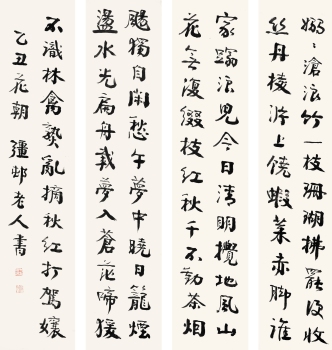 嫋〻滄浪竹一枝珊瑚拂罷没收
絲丹棱沜上饒蝦菜赤脚誰
家蹋浪兒今日清明攪地風山
花無復綴枝紅秋千不動茶烟
颺獨自閑愁午夢中曉日籠煙
盪水光扁舟載夢入蒼茫啼猨
不識林禽熟亂摘秋紅打駕孃
乙丑花朝彊邨老人書